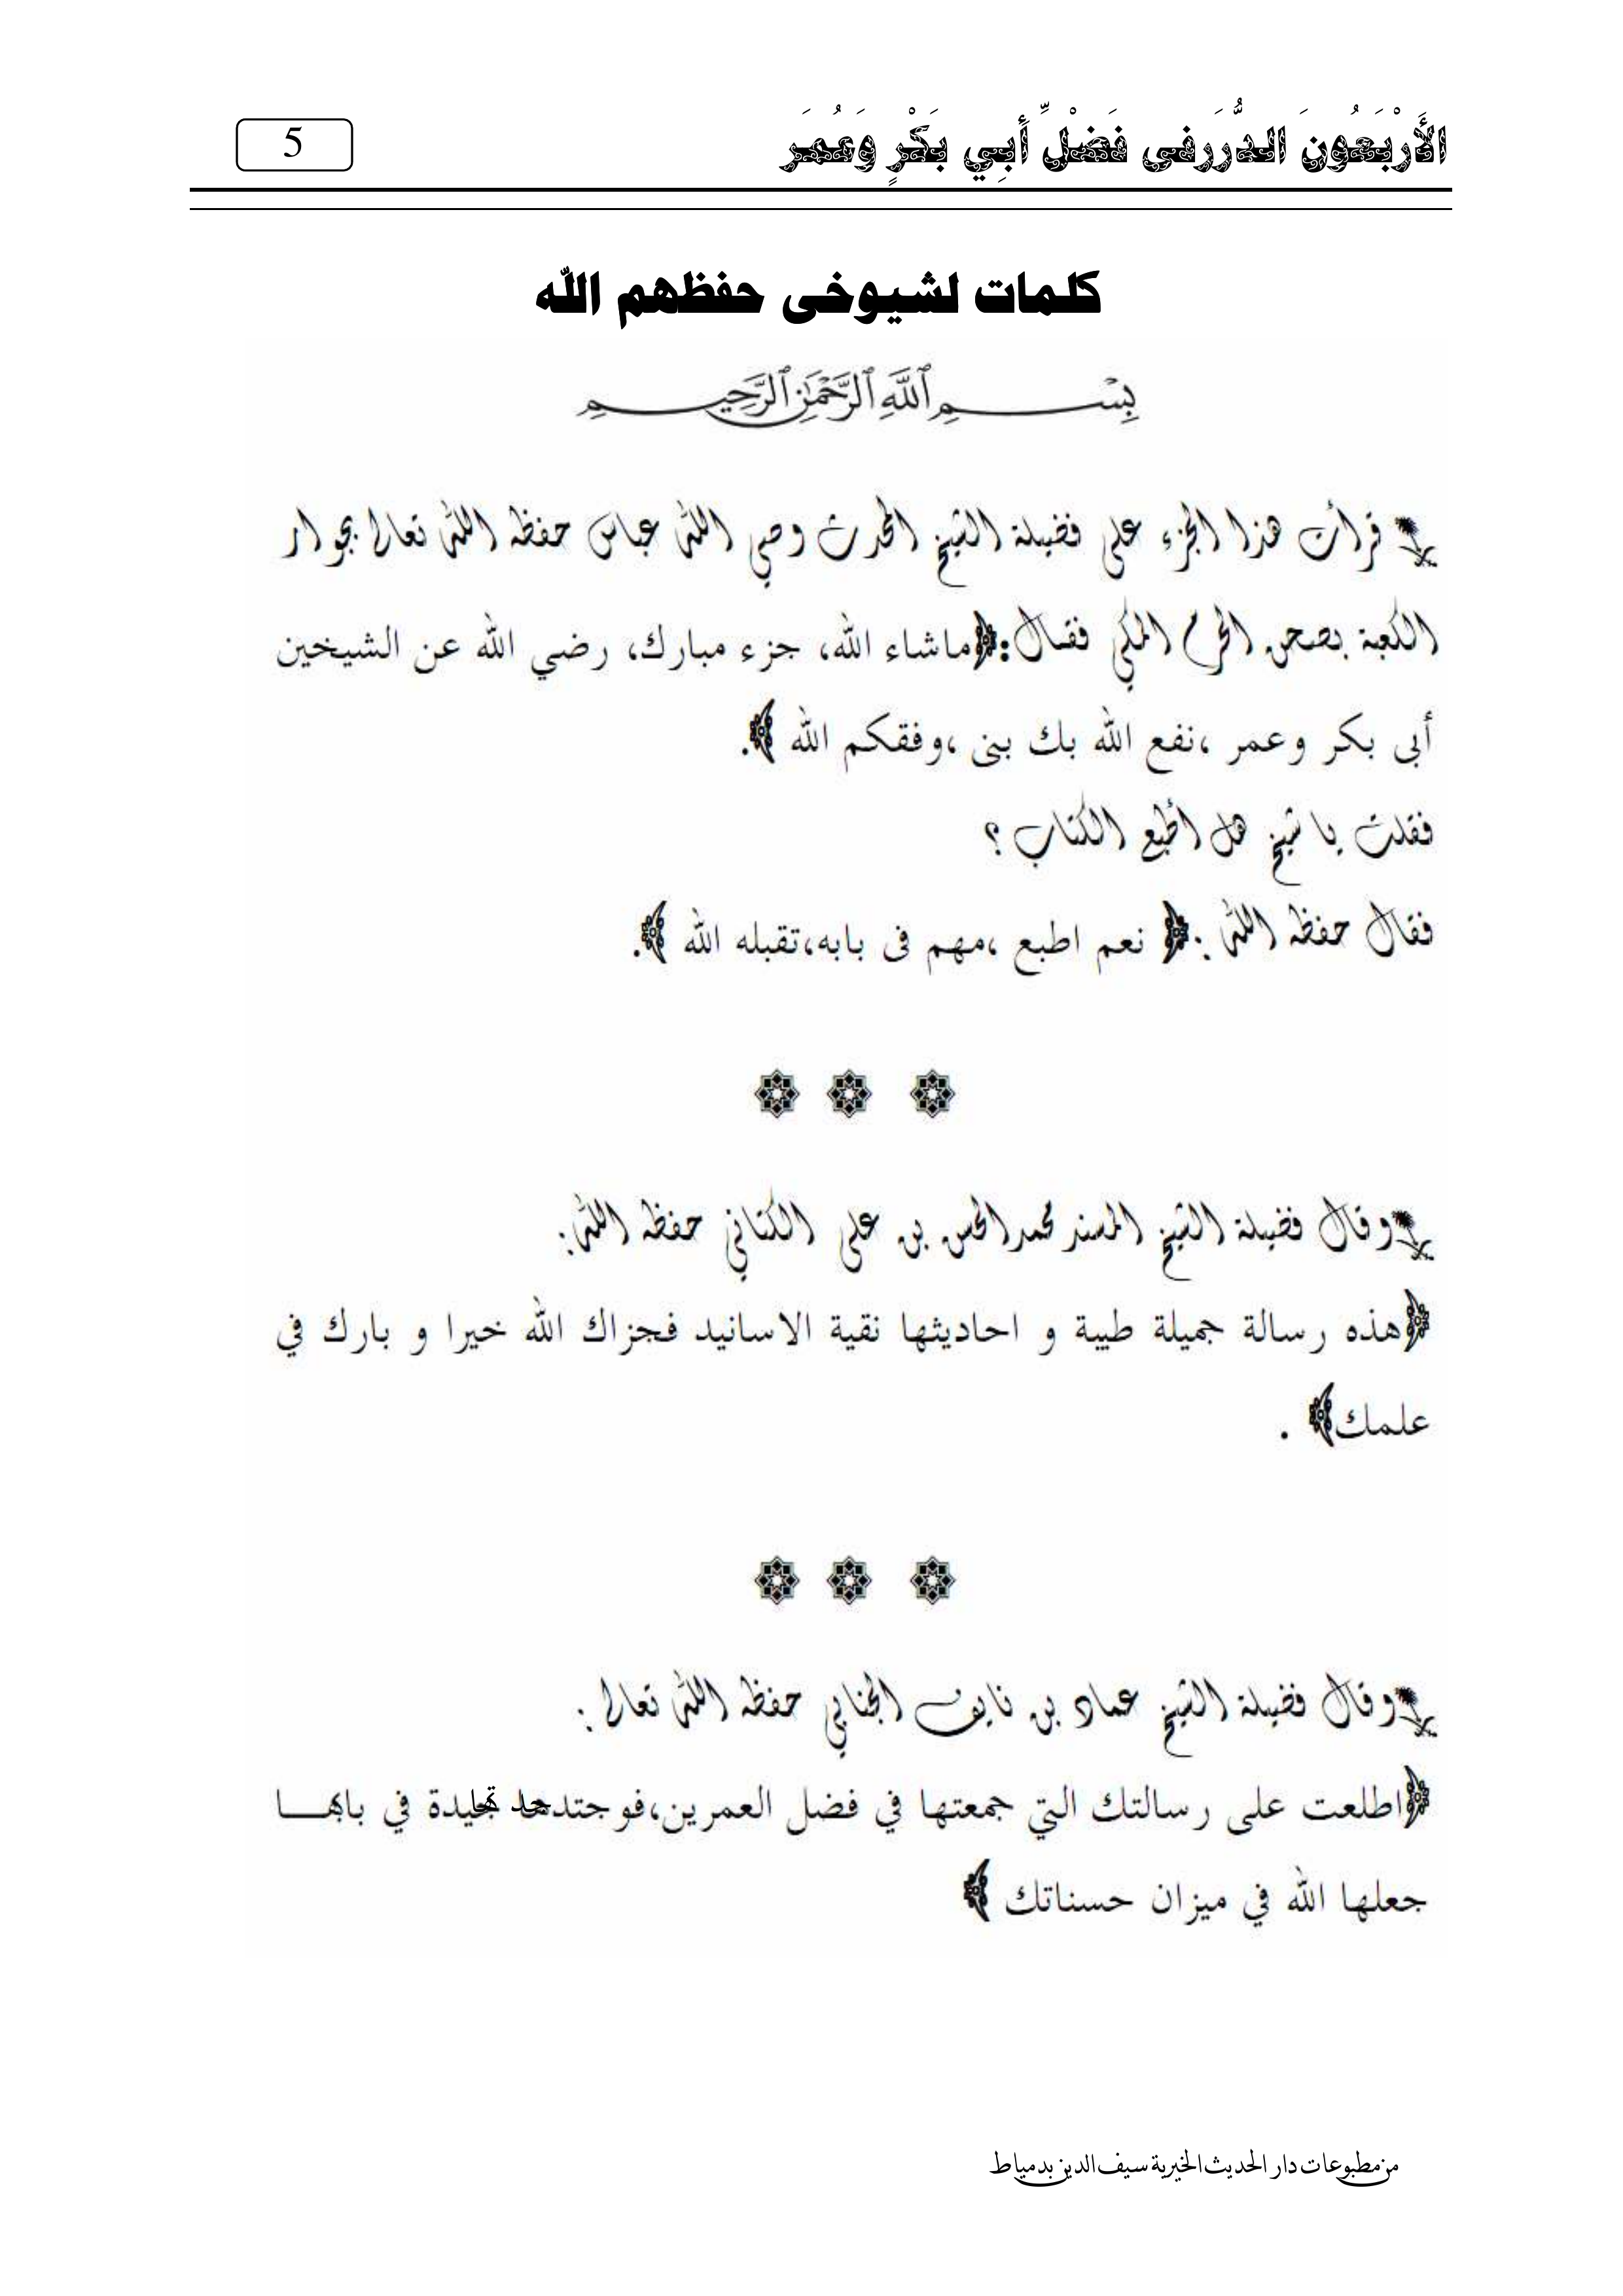 الأَرْبَعُونَ الدُّرَرفى فَضْلِّ أَبِي بَكْرٍ وَعُمَرَ
5
كلمات لشيوخى حفظهم الله
بِسْمِ ٱللَّهِ ٱلرَّحْمَٰنِ ٱلرَّحِيمِ
قرأت هذا الجزء على فضيلة الشيخ المحدث وصي الله عباس حفظه الله تعالى بجوار
الكعبة بصحن الحرم المكي فقال:﴿ماشاء الله، جزء مبارك، رضي الله عن الشيخين
أبى بكر وعمر ،نفع الله بك بنى ،وفقكم الله ﴾.
فقلت يا شيخ هل أطبع الكتاب ؟
فقال حفظه الله :﴿ نعم اطبع ،مهم فى بابه،تقبله الله ﴾.
وقال فضيلة الشيخ المسند محمدالحسن بن على الكتاني حفظه الله:
﴿هذه رسالة جميلة طيبة و احاديثها نقية الاسانيد فجزاك الله خيرا و بارك في
علمك﴾ .
وقال فضيلة الشيخ عماد بن نايف الجنابي حفظه الله تعالى :
﴿اطلعت على رسالتك التي جمعتها في فضل العمرين، في بابها
جعلها الله في ميزان حسناتك ﴾
من مطبوعات دار الحديث الخيرية سيف الدين بدمياط